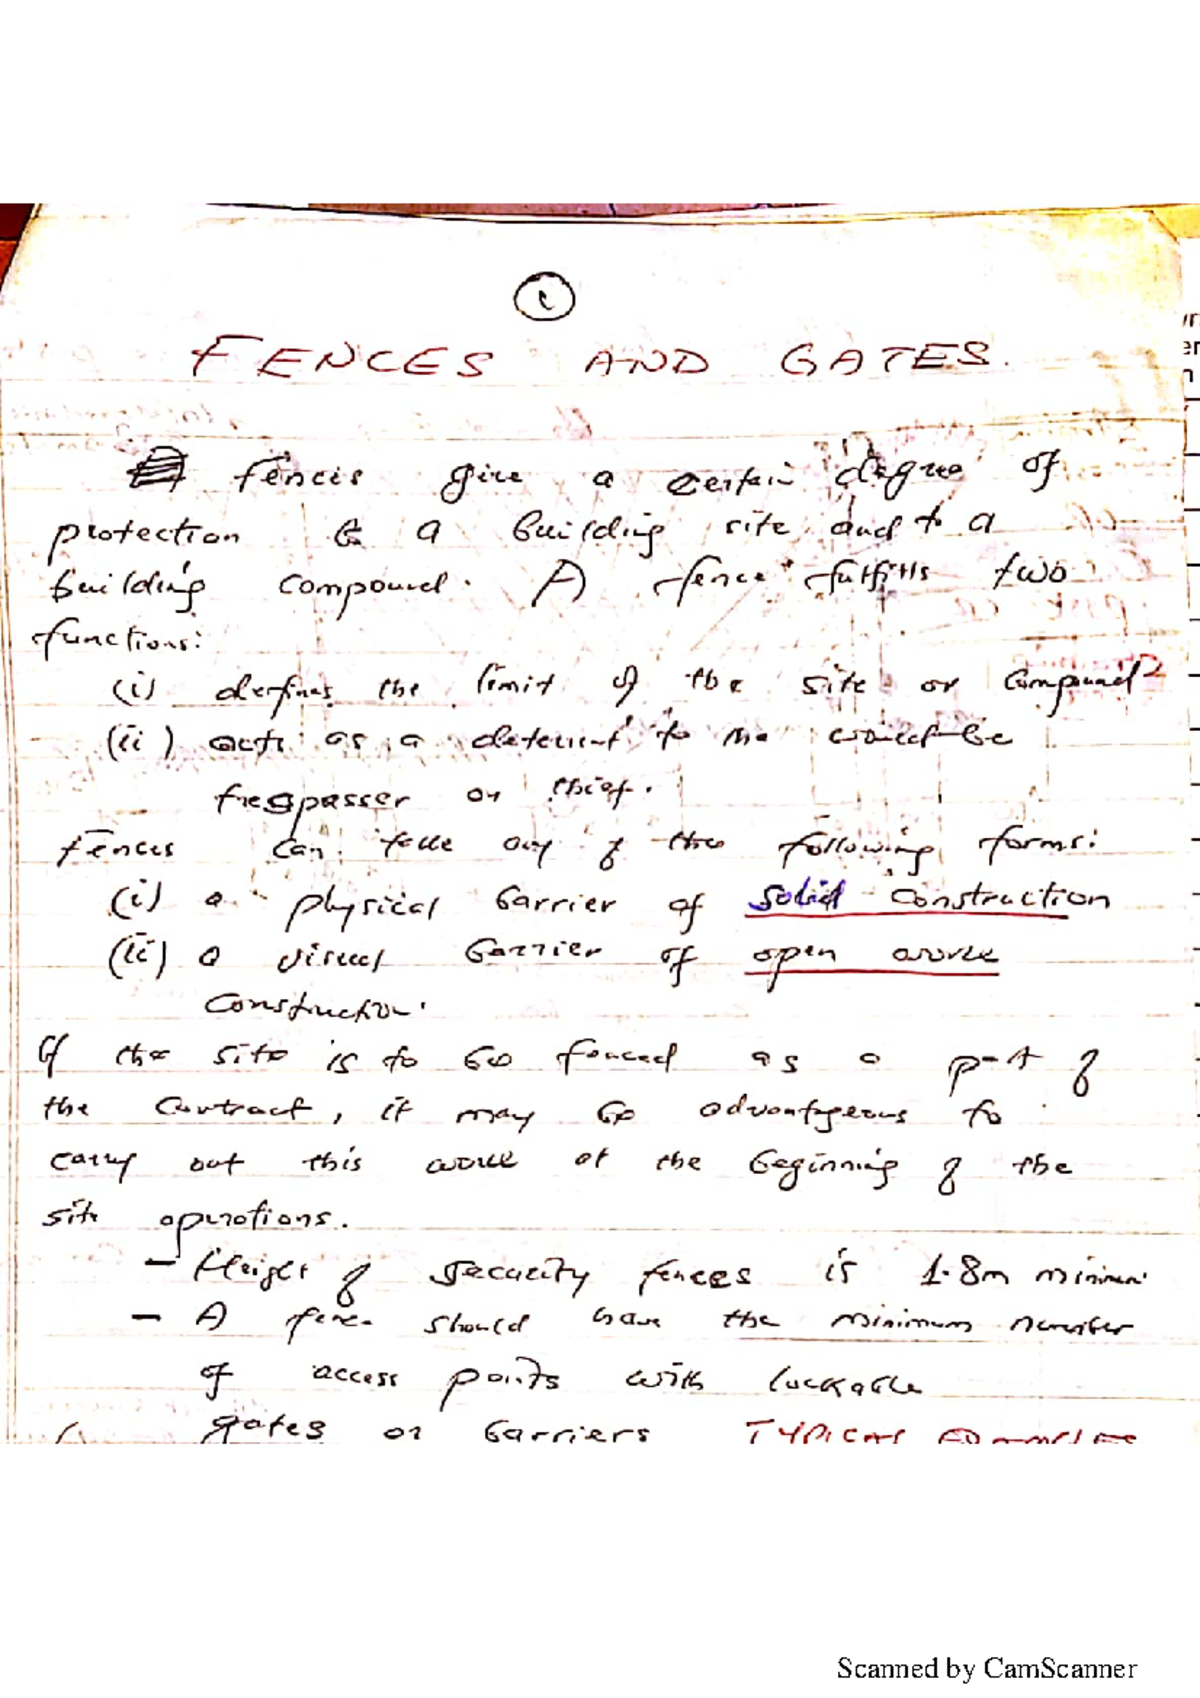 FENCES AND GATES.
Fences give a certain degree of
protection to a building site and to a
building compound. A fence fulfills two
functions:
(i) defines the limit of the site or compound
(ii) acts as a deterrent to the would be
trespasser or thief.
Fences can take any of the following forms:
(i) a physical barrier of solid construction
(ii) a visual barrier of open work
construction.
If the site is to be fenced as a part of
the contract, it may be advantageous to
carry out this work at the beginning of the
site operations.
- Height of security fences is 1.8m minimum
- A fence should have the minimum number
of access points with lockable
gates or barriers TYPICAL
Scanned by CamScanner